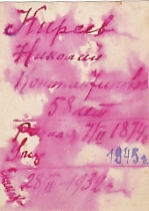 Киреев
Николай
Константинович
58 лет
Родился 7/II 1874.
1945 г.
28/II 1932 г.